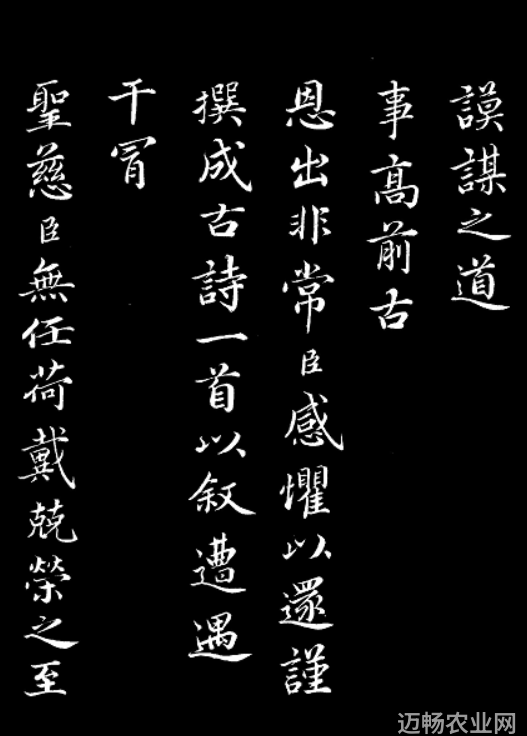 謨謀之道
事高前古
恩出非常臣感懼以還謹
撰成古詩一首以叙遭遇
干冒
聖慈臣無任荷戴兢榮之至
迈畅农业网